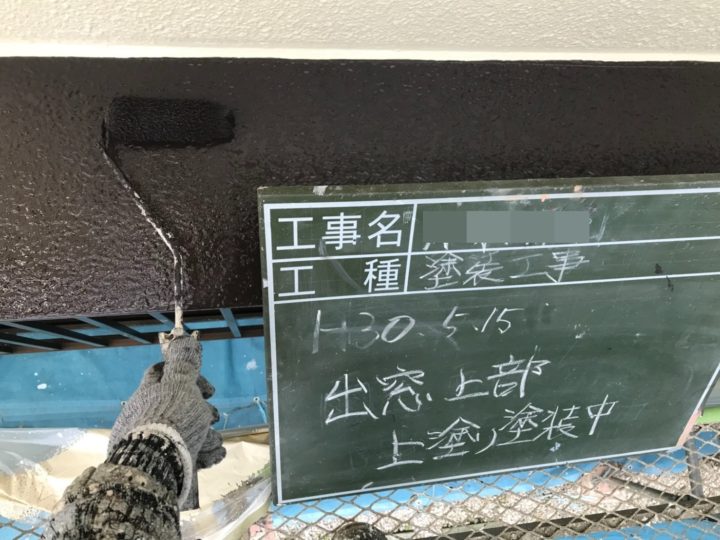 工事名
工種 塗装工事
H30.5.15
出窓上部
上塗り塗装中